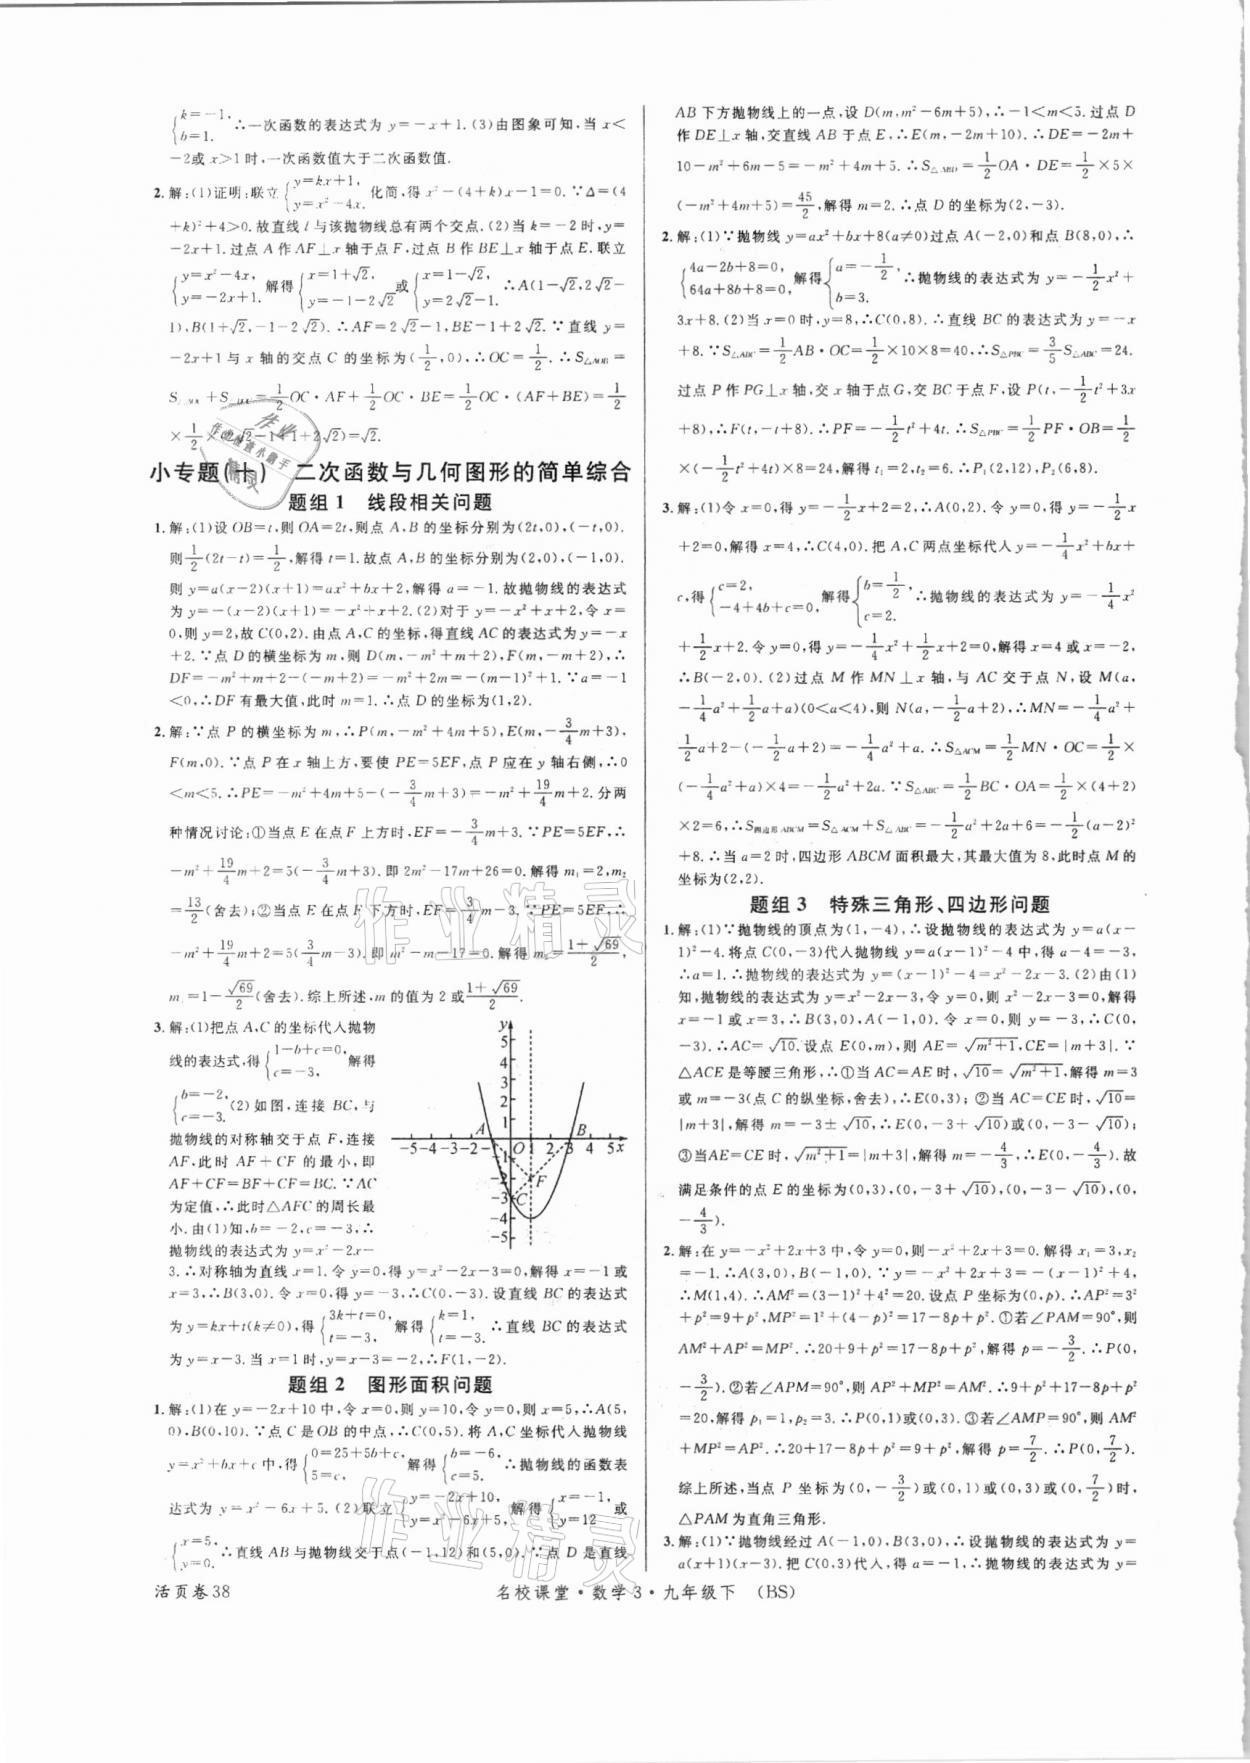 {k=-1, b=1. ∴一次函数的表达式为 y=-x+1. (3)由图象可知,当 x<
-2或 x>1时,一次函数值大于二次函数值.
2. 解:(1)证明:联立{y=kx+1, y=x²-4x. 化简,得 x²-(4+k)x-1=0. ∵Δ=(4
+k)²+4>0. 故直线 l 与该抛物线总有两个交点. (2)当 k=-2 时, y=
-2x+1. 过点 A 作 AF⊥x 轴于点 F,过点 B 作 BE⊥x 轴于点 E. 联立
{y=x²-4x, y=-2x+1. 解得{x=1+√2, y=-1-2√2 或{x=1-√2, y=2√2-1. ∴A(1-√2,2√2-
1),B(1+√2,-1-2√2). ∴AF=2√2-1,BE=1+2√2. ∵直线 y=
-2x+1 与 x 轴的交点 C 的坐标为(1/2,0),∴OC=1/2. ∴S△AOB=
+ =1/2 OC·AF+1/2 OC·BE=1/2 OC·(AF+BE)=1/2
×1/2×(2√2-1+1+2√2)=√2.
小专题(十) 二次函数与几何图形的简单综合
题组1 线段相关问题
1. 解:(1)设 OB=t,则 OA=2t,则点 A、B 的坐标分别为(2t,0),(-t,0).
则1/2(2t-t)=1/2,解得 t=1. 故点 A、B 的坐标分别为(2,0),(-1,0).
则 y=a(x-2)(x+1)=ax²+bx+2,解得 a=-1. 故抛物线的表达式
为 y=-(x-2)(x+1)=-x²+x+2. (2)对于 y=-x²+x+2,令 x=
0,则 y=2,故 C(0,2). 由点 A、C 的坐标,得直线 AC 的表达式为 y=-x
+2. ∵点 D 的横坐标为 m,则 D(m,-m²+m+2),F(m,-m+2),∴
DF=-m²+m+2-(-m+2)=-m²+2m=-(m-1)²+1. ∵a=-1
<0,∴DF 有最大值,此时 m=1. ∴点 D 的坐标为(1,2).
2. 解:∵点 P 的横坐标为 m,∴P(m,-m²+4m+5),E(m,-3/4 m+3),
F(m,0). ∵点 P 在 x 轴上方,要使 PE=5EF,点 P 应在 y 轴右侧,∴0
<m<5. ∴PE=-m²+4m+5-(-3/4 m+3)=-m²+19/4 m+2. 分两
种情况讨论:①当点 E 在点 F 上方时,EF=-3/4 m+3. ∵PE=5EF,∴
-m²+19/4 m+2=5(-3/4 m+3). 即 2m²-17m+26=0. 解得 m₁=2,m₂
=13/2(舍去);②当点 E 在点 F 下方时,EF=3/4 m-3. ∵PE=5EF,∴
-m²+19/4 m+2=5(3/4 m-3). 即 m²-m-17=0. 解得 m₃=(1+√69)/2,
m₄=1-√69/2(舍去). 综上所述,m 的值为 2 或(1+√69)/2.
3. 解:(1)把点 A、C 的坐标代入抛物
线的表达式,得{1-b+c=0, c=-3, 解得
{b=-2, c=-3. (2)如图,连接 BC,与
抛物线的对称轴交于点 F,连接
AF,此时 AF+CF 的最小,即
AF+CF=BF+CF=BC. ∵AC
为定值,∴此时△AFC 的周长最
小. 由(1)知,b=-2,c=-3,∴
抛物线的表达式为 y=x²-2x-
3. ∴对称轴为直线 x=1. 令 y=0,得 y=x²-2x-3=0,解得 x=-1或
x=3,∴B(3,0). 令 x=0,得 y=-3,∴C(0,-3). 设直线 BC 的表达式
为 y=kx+t(k≠0),得{3k+t=0, t=-3, 解得{k=1, t=-3. ∴直线 BC 的表达式
为 y=x-3. 当 x=1时,y=x-3=-2,∴F(1,-2).
y
5
4
3
2
1
A B
-5-4-3-2-1 O 1 2 3 4 5 x
-1
-2
-3
-4
-5
F
C
题组2 图形面积问题
1. 解:(1)在 y=-2x+10 中,令 x=0,则 y=10,令 y=0,则 x=5,∴A(5,
0),B(0,10). ∵点 C 是OB 的中点,∴C(0,5). 将 A、C 坐标代入抛物线
y=x²+bx+c 中,得{0=25+5b+c, 5=c, 解得{b=-6, c=5. ∴抛物线的函数表
达式为 y=x²-6x+5. (2)联立{y=-2x+10, y=x²-6x+5, 解得{x=-1, y=12 或
{x=5, y=0. ∴直线 AB 与抛物线交于点(-1,12)和(5,0). ∵点 D 是直线
AB 下方抛物线上的一点,设 D(m,m²-6m+5),∴-1<m<5. 过点 D
作 DE⊥x 轴,交直线 AB 于点 E,∴E(m,-2m+10). ∴DE=-2m+
10-m²+6m-5=-m²+4m+5. ∴S△ABD=1/2 OA·DE=1/2×5×
(-m²+4m+5)=45/2,解得 m=2. ∴点 D 的坐标为(2,-3).
2. 解:(1)∵抛物线 y=ax²+bx+8(a≠0)过点 A(-2,0)和点 B(8,0),∴
{4a-2b+8=0, 64a+8b+8=0, 解得{a=-1/2, b=3. ∴抛物线的表达式为 y=-1/2 x²+
3x+8. (2)当 x=0时,y=8,∴C(0,8). ∴直线 BC 的表达式为 y=-x
+8. ∵S△ABC=1/2 AB·OC=1/2×10×8=40,∴S△PBC=3/5 S△ABC=24.
过点 P 作 PG⊥x 轴,交 x 轴于点 G,交 BC 于点 F,设 P(t,-1/2 t²+3x
+8),∴F(t,-t+8). ∴PF=-1/2 t²+4t. ∴S△PBC=1/2 PF·OB=1/2
×(-1/2 t²+4t)×8=24. 解得 t₁=2,t₂=6. ∴P₁(2,12),P₂(6,8).
3. 解:(1)令 x=0,得 y=-1/2 x+2=2,∴A(0,2). 令 y=0,得 y=-1/2 x
+2=0,解得 x=4,∴C(4,0). 把 A、C 两点坐标代入 y=-1/4 x²+bx+
c,得{c=2, -4+4b+c=0, 解得{b=1/2, c=2. ∴抛物线的表达式为 y=-1/4 x²
+1/2 x+2. 令 y=0,得 y=-1/4 x²+1/2 x+2=0. 解得 x=4或 x=-2,
∴B(-2,0). (2)过点 M 作 MN⊥x 轴,与 AC 交于点 N,设 M(a,
-1/4 a²+1/2 a+a)(0<a<4),则 N(a,-1/2 a+2),∴MN=-1/4 a²+
1/2 a+2-(-1/2 a+2)=-1/4 a²+a. ∴S△ACM=1/2 MN·OC=1/2×
(-1/4 a²+a)×4=-1/2 a²+2a. ∵S△ABC=1/2 BC·OA=1/2×(4+2)
×2=6,∴S四边形ABCM=S△ACM+S△ABC=-1/2 a²+2a+6=-1/2(a-2)²
+8. ∴当 a=2时,四边形 ABCM 面积最大,其最大值为 8,此时点 M 的
坐标为(2,2).
题组3 特殊三角形、四边形问题
1. 解:(1)∵抛物线的顶点为(1,-4),∴设抛物线的表达式为 y=a(x-
1)²-4. 将点 C(0,-3)代入抛物线 y=a(x-1)²-4 中,得 a-4=-3,
∴a=1. ∴抛物线的表达式为 y=(x-1)²-4=x²-2x-3. (2)由(1)
知,抛物线的表达式为 y=x²-2x-3,令 y=0,则 x²-2x-3=0,解得
x=-1 或 x=3,∴B(3,0),A(-1,0). 令 x=0,则 y=-3,∴C(0,
-3). ∴AC=√10. 设点 E(0,m),则 AE=√(m²+1),CE=|m+3|. ∵
△ACE 是等腰三角形,∴①当 AC=AE 时,√10=√(m²+1),解得 m=3
或 m=-3(点 C 的纵坐标,舍去),∴E(0,3);②当 AC=CE 时,√10=
|m+3|,解得 m=-3±√10,∴E(0,-3+√10)或(0,-3-√10);
③当AE=CE 时,√(m²+1)=|m+3|,解得 m=-4/3,∴E(0,-4/3). 故
满足条件的点 E 的坐标为(0,3),(0,-3+√10),(0,-3-√10),(0,
-4/3).
2. 解:在 y=-x²+2x+3 中,令 y=0,则-x²+2x+3=0. 解得 x₁=3,x₂
=-1. ∴A(3,0),B(-1,0). ∵y=-x²+2x+3=-(x-1)²+4,
∴M(1,4). ∴AM²=(3-1)²+4²=20. 设点 P 坐标为(0,p). ∴AP²=3²
+p²=9+p²,MP²=1²+(4-p)²=17-8p+p². ①若∠PAM=90°,则
AM²+AP²=MP². ∴20+9+p²=17-8p+p²,解得 p=-3/2. ∴P(0,
-3/2). ②若∠APM=90°,则 AP²+MP²=AM². ∴9+p²+17-8p+p²
=20,解得 p₁=1,p₂=3. ∴P(0,1)或(0,3). ③若∠AMP=90°,则 AM²
+MP²=AP². ∴20+17-8p+p²=9+p²,解得 p=7/2. ∴P(0,7/2).
综上所述,当点 P 坐标为(0,-3/2)或(0,1)或(0,3)或(0,7/2)时,
△PAM 为直角三角形.
3. 解:(1)∵抛物线经过 A(-1,0),B(3,0),∴设抛物线的表达式为 y=
a(x+1)(x-3). 把 C(0,3)代入,得 a=-1,∴抛物线的表达式为 y=
活页卷38
名校课堂·数学3·九年级下 (BS)
作业精灵
作业精灵